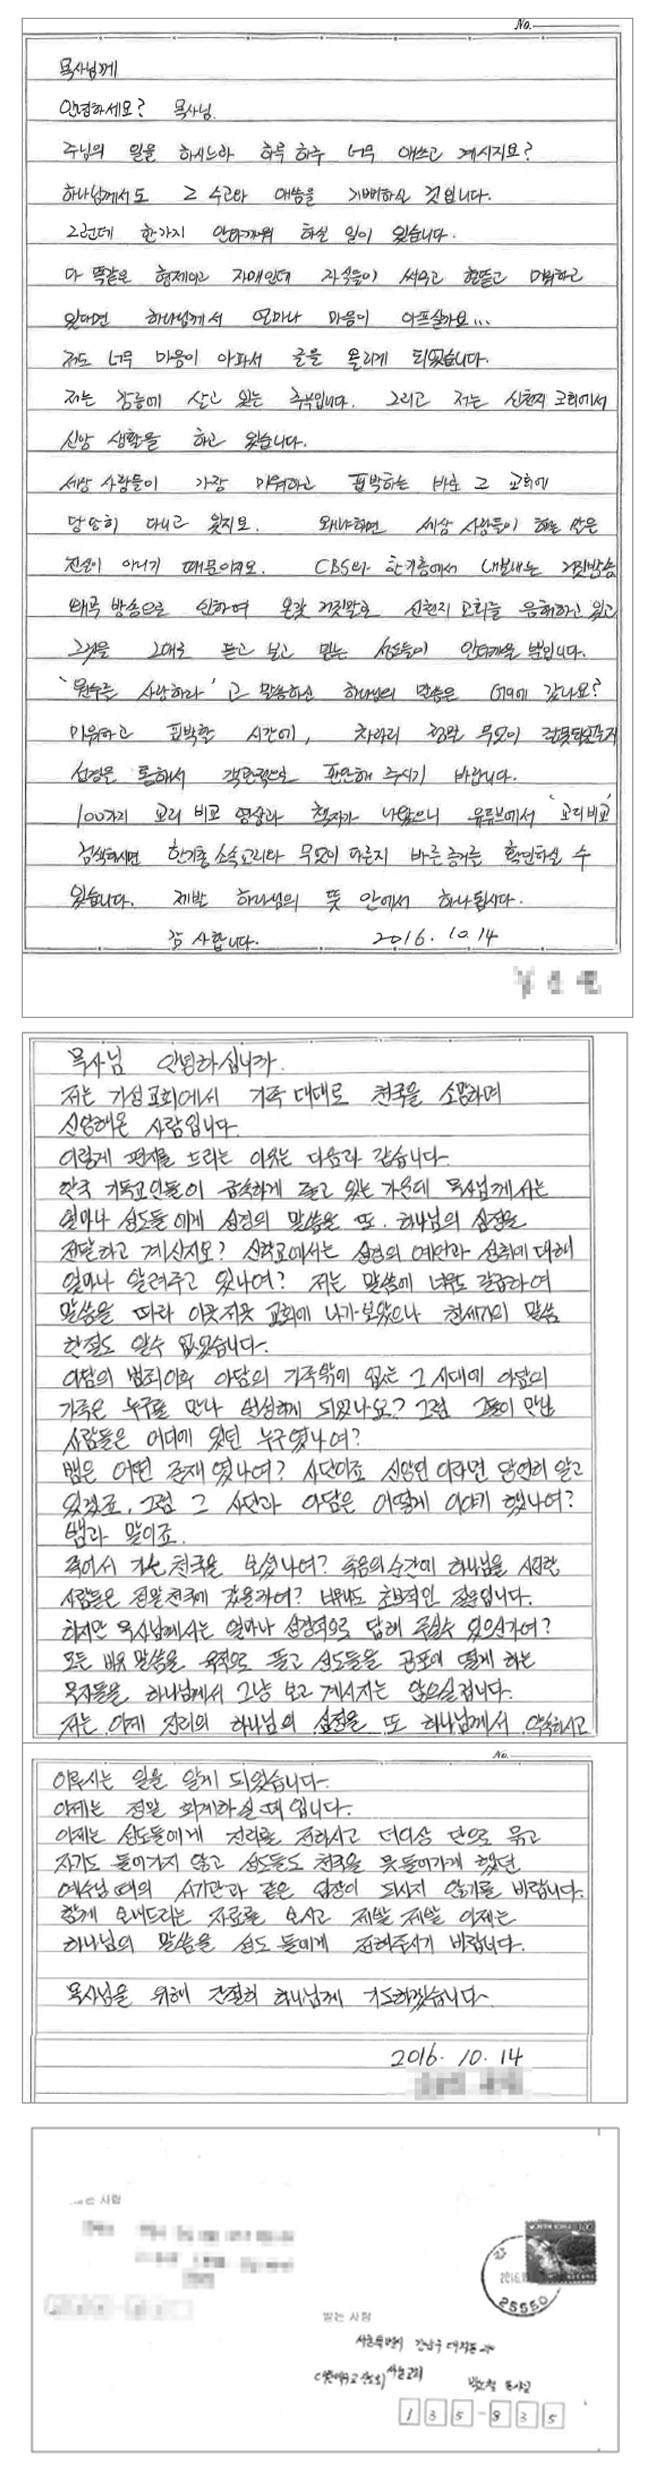 No.
목사님께
안녕하세요? 목사님.
주님의 일을 하시느라 하루 하루 너무 애쓰고 계시지요?
하나님께서도 그 수고와 애씀을 기뻐하실 것입니다.
그런데 한가지 안타까워 하실 일이 있습니다.
다 똑같은 형제이고 자매인데 자식들이 싸우고 헐뜯고 미워하고
있다면 하나님께서 얼마나 마음이 아프실까요...
저도 너무 마음이 아파서 글을 올리게 되었습니다.
저는 강릉에 살고 있는 주부입니다. 그리고 저는 신천지 교회에서
신앙 생활을 하고 있습니다.
세상 사람들이 가장 미워하고 핍박하는 바로 그 교회에
당당히 다니고 있지요. 왜냐하면 세상 사람들이 하는 말은
진실이 아니기 때문이지요. CBS와 한기총에서 내보내는 거짓방송
왜곡 방송으로 인하여 온갖 거짓말로 신천지 교회를 음해하고 있고
그것을 그대로 듣고 보고 믿는 성도들이 안타까울 뿐입니다.
'원수를 사랑하라'고 말씀하신 하나님의 말씀은 어디에 갔나요?
미워하고 핍박할 시간에, 차라리 정말 무엇이 잘못되었는지
성경을 통해서 객관적으로 판단해 주시기 바랍니다.
100가지 교리 비교 영상과 책자가 나왔으니 유튜브에서 '교리비교'
검색하시면 한기총 소속교리와 무엇이 다른지 바른 증거를 확인하실 수
있습니다. 제발 하나님의 뜻 안에서 하나됩시다.
감사합니다. 2016. 10. 14
목사님 안녕하십니까.
저는 기성교회에서 가족 대대로 천국을 소망하며
신앙해온 사람입니다.
이렇게 편지를 드리는 이유는 다음과 같습니다.
한국 기독교인들이 급속하게 줄고 있는 가운데 목사님께서는
얼마나 성도들에게 성경의 말씀을 또. 하나님의 심정을
전달하고 계신지요? 신학교에서는 성경의 예언과 성취에 대해
얼마나 알려주고 있나여? 저는 말씀에 너무도 갈급하여
말씀을 따라 이곳저곳 교회에 나가보았으나 창세기의 말씀
한절도 알수 없었습니다.
아담의 범죄이후 아담의 가족밖에 없는 그 시대에 아담의
가족은 누구를 만나 번성하게 되었나요? 그럼 그들이 만난
사람들은 어디에 있던 누구였나여?
뱀은 어떤 존재였나여? 사단이죠 신앙인 이라면 당연히 알고
있겠죠. 그럼 그 사단과 아담은 어떻게 이야기 했나여?
뱀과 말이죠.
죽어서 가는 천국을 보셨나여? 죽음의 순간에 하나님을 시인한
사람들은 정말 천국에 갔을까여? 너무나도 초보적인 질문입니다.
하지만 목사님께서는 얼마나 성경적으로 답해 주실수 있으신가여?
모든 비유 말씀을 육적으로 풀고 성도들을 공포에 떨게 하는
목자들을 하나님께서 그냥 보고 계시지는 않으실겁니다.
저는 이제 진리의 하나님의 심정을 또 하나님께서 약속하시고
No.
이루시는 일을 알게 되었습니다.
이제는 정말 회개하실 때 입니다.
이제는 성도들에게 진리를 전하시고 더이상 단으로 묶고
자기도 들어가지 않고 성도들도 천국을 못들어가게 했던
예수님 때의 서기관과 같은 입장이 되시지 않기를 바랍니다.
함께 보내드리는 자료를 보시고 제발 제발 이제는
하나님의 말씀을 성도들에게 전해주시기 바랍니다.
목사님을 위해 간절히 하나님께 기도하겠습니다.
2016. 10. 14
는 사람
2016.1
25550
받는 사람
서울특별시 강남구 대치동
서울교회
목사님
135-835